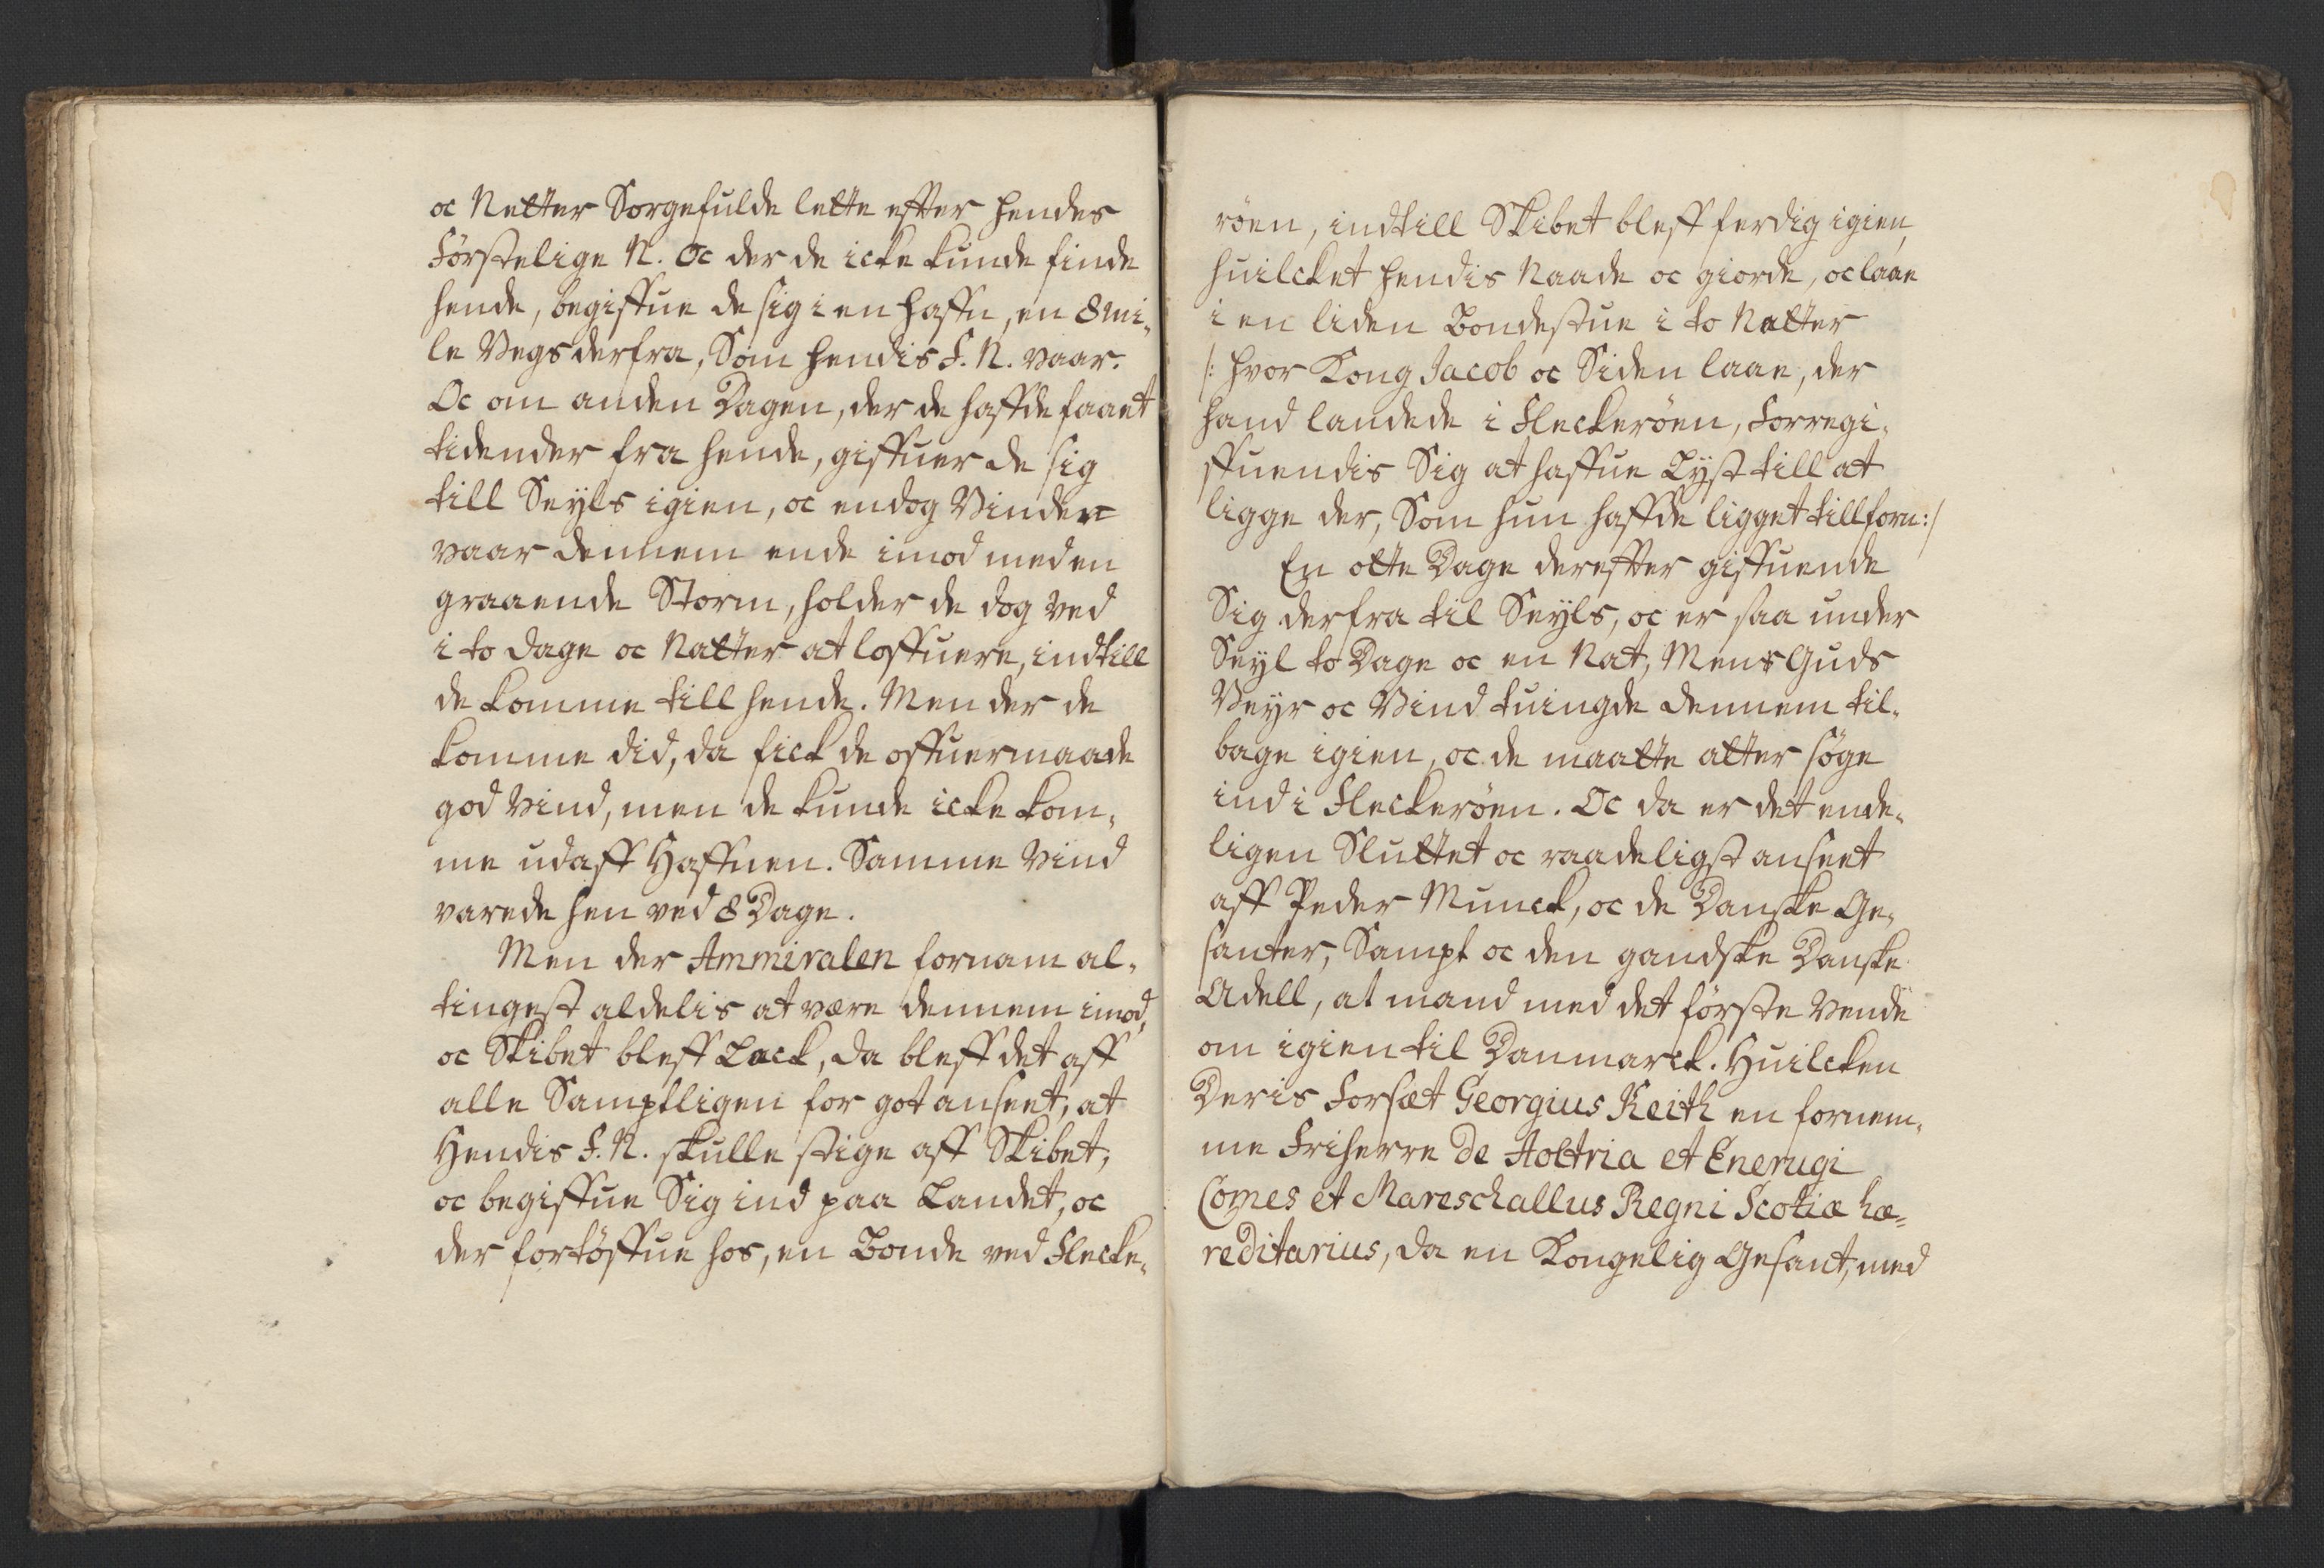 oc Netter Sorgefulde lette effter hendes
Förstelige N. Oc der de icke kunde finde
hende, begiffue de sig i en haffn, en 8 mi-
le Vegs derfra, Som hendis F. N. vaar.
Oc om anden Dagen, der de haffde faaet
tidender fra hende, giffuer de sig
till Seyls igien, oc endog Vinden
vaar dennem ende imod med en
graaende Storm, holder de dog ved
i to dage oc Natter at loffuere, indtill
de komme till hende. Men der de
komme did, da fick de offuermaade
god Vind, men de kunde icke kom-
me udaff Haffnen. Samme Vind
varede hen ved 8 Dage.
Men der Ammiralen fornam al-
tingest aldelis at være dennem imod,
oc Skibet bleff Læck, da bleff det aff
alle Samptligen for got anseet, at
Hendis F. N. skulle stige aff Skibet,
oc begiffue Sig ind paa Landet, oc
der fortöffue hos, en Bonde ved Flecke-
röen, indtill Skibet bleff ferdig igien,
huilcket hendis Naade oc giorde, oc laae
i en liden Bondestue i to Netter
/: hvor Kong Jacob oc Siden laae, der
hand landede i Fleckeröen, Forregi-
ffuendis Sig at haffue Lyst till at
ligge der, Som hun haffde ligget tillforn :/
En otte Dage dereffter giffuende
Sig derfra til Seyls, oc er saa under
Seyl to Dage oc en Nat, Mens Guds
Veyr oc Vind tuingde dennem til-
bage igien, oc de maatte atter söge
ind i Fleckeröen. Oc da er det ende-
ligen Sluttet oc raadeligst anseet
aff Peder Munck, oc de Danske Ge-
santer, Sampt oc den gandske Danske
Adell, at mand med det förste Vende
om igien til Danmarck. Huilcken
Deris Forsæt Georgius Keith en fornem-
me Friherre de Aoltria et Enerugi
Comes et Mareschallus Regni Scotiæ hæ-
reditarius, da en Kongelig Gesant, med